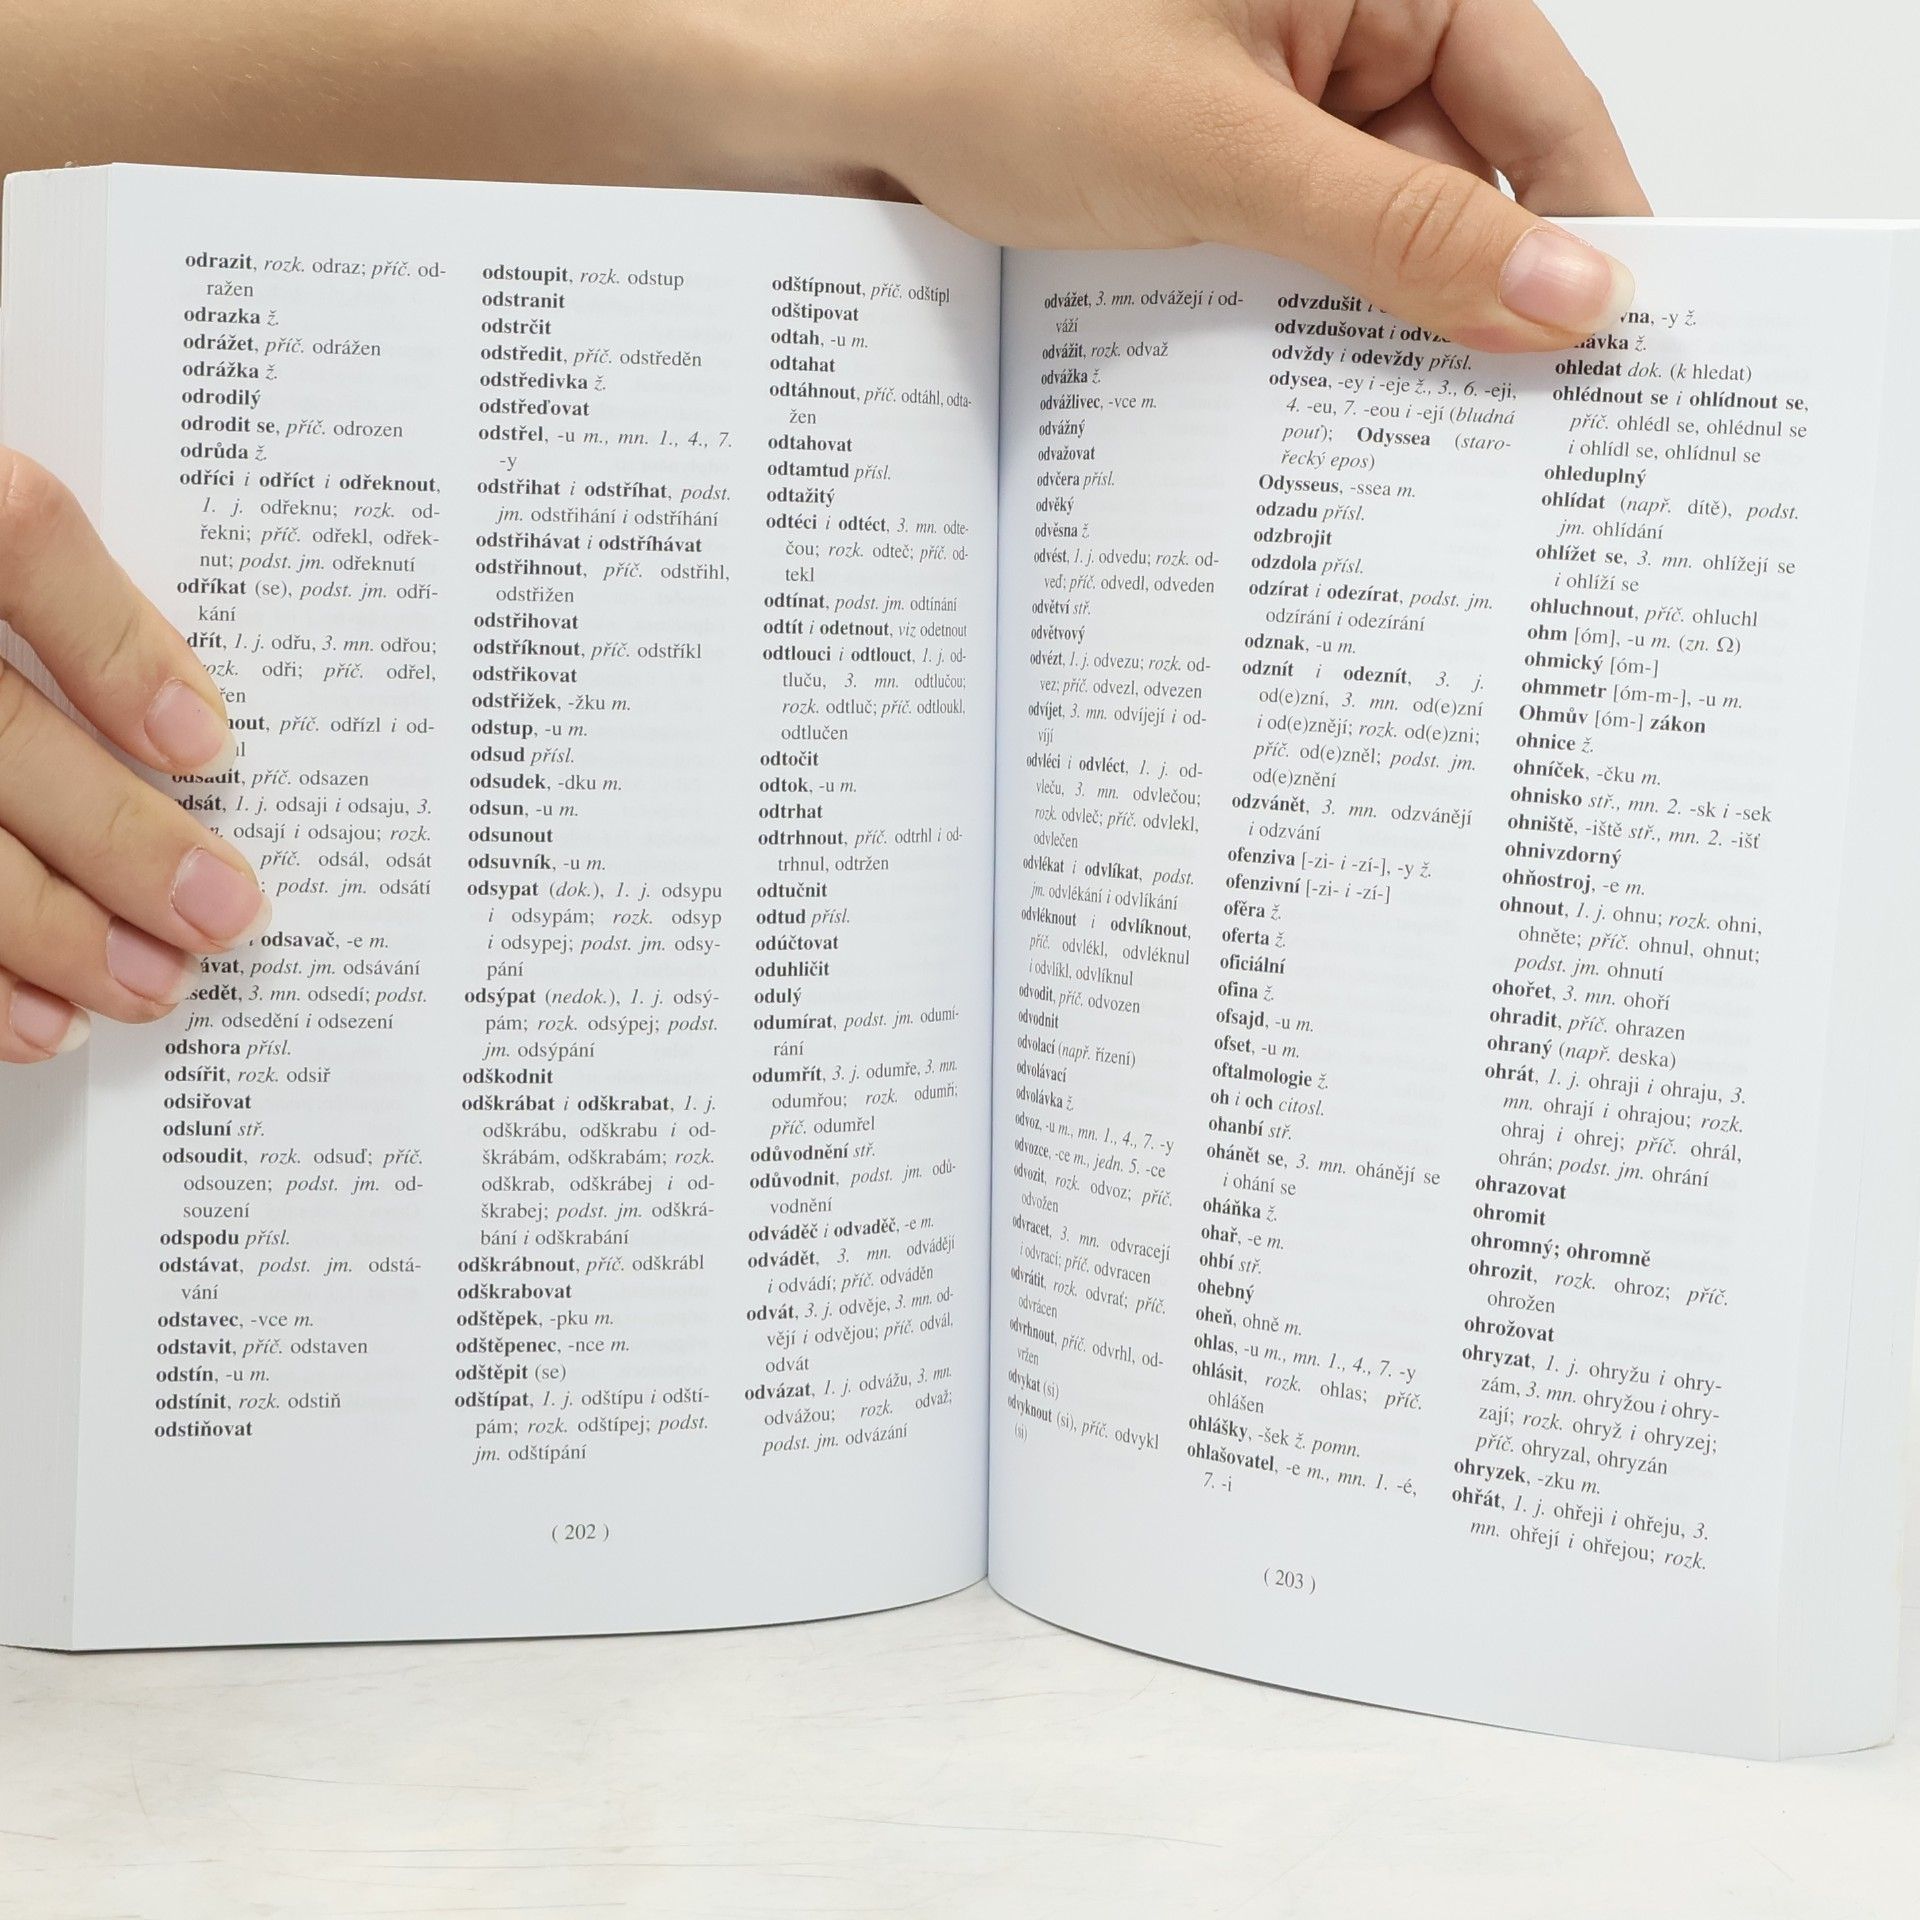 odrazit, rozk. odraz; příč. od-
ražen
odrazka ž.
odrážet, příč. odrážen
odrážka ž.
odrodilý
odrodit se, příč. odrozen
odrůda ž.
odříci i odříct i odřeknout,
1. j. odřeknu; rozk. od-
řekni; příč. odřekl, odřek-
nut; podst. jm. odřeknutí
odříkat (se), podst. jm. odří-
kání
1. j. odřu, 3. mn. odřou;
odři; příč. odřel,
příč. odřízl i od-
příč. odsazen
1. j. odsaji i odsaju, 3.
odsají i odsajou; rozk.
příč. odsál, odsát
podst. jm. odsátí
odsavač, -e m.
podst. jm. odsávání
3. mn. odsedí; podst.
jm. odsedění i odsezení
odshora přísl.
odsířit, rozk. odsiř
odsiřovat
odsluní stř.
odsoudit, rozk. odsuď; příč.
odsouzen; podst. jm. od-
souzení
odspodu přísl.
odstávat, podst. jm. odstá-
vání
odstavec, -vce m.
odstavit, příč. odstaven
odstín, -u m.
odstínit, rozk. odstiň
odstiňovat
odstoupit, rozk. odstup
odstranit
odstrčit
odstředit, příč. odstředěn
odstředivka ž.
odstřeďovat
odstřel, -u m., mn. 1., 4., 7.
-y
odstřihat i odstříhat, podst.
jm. odstřihání i odstříhání
odstřihávat i odstříhávat
odstřihnout, příč. odstřihl,
odstřižen
odstřihovat
odstříknout, příč. odstříkl
odstřikovat
odstřižek, -žku m.
odstup, -u m.
odsud přísl.
odsudek, -dku m.
odsun, -u m.
odsunout
odsuvník, -u m.
odsypat (dok.), 1. j. odsypu
i odsypám; rozk. odsyp
i odsypej; podst. jm. odsy-
pání
odsýpat (nedok.), 1. j. odsý-
pám; rozk. odsýpej; podst.
jm. odsýpání
odškodnit
odškrábat i odškrabat, 1. j.
odškrábu, odškrabu i od-
škrábám, odškrabám; rozk.
odškrab, odškrábej i od-
škrabej; podst. jm. odškrá-
bání i odškrabání
odškrábnout, příč. odškrábl
odškrabovat
odštěpek, -pku m.
odštěpenec, -nce m.
odštěpit (se)
odštípat, 1. j. odštípu i odští-
pám; rozk. odštípej; podst.
jm. odštípání
odštípnout, příč. odštípl
odštipovat
odtah, -u m.
odtahat
odtáhnout, příč. odtáhl, odta-
žen
odtahovat
odtamtud přísl.
odtažitý
odtéci i odtéct, 3. mn. odte-
čou; rozk. odteč; příč. od-
tekl
odtínat, podst. jm. odtínání
odtít i odetnout, viz odetnout
odtlouci i odtlouct, 1. j. od-
tluču, 3. mn. odtlučou;
rozk. odtluč; příč. odtloukl,
odtlučen
odtočit
odtok, -u m.
odtrhat
odtrhnout, příč. odtrhl i od-
trhnul, odtržen
odtučnit
odtud přísl.
odúčtovat
oduhličit
odulý
odumírat, podst. jm. odumí-
rání
odumřít, 3. j. odumře, 3. mn.
odumřou; rozk. odumři;
příč. odumřel
odůvodnění stř.
odůvodnit, podst. jm. odů-
vodnění
odváděč i odvaděč, -e m.
odvádět, 3. mn. odvádějí
i odvádí; příč. odváděn
odvát, 3. j. odvěje, 3. mn. od-
vějí i odvějou; příč. odvál,
odvát
odvázat, 1. j. odvážu, 3. mn.
odvážou; rozk. odvaž;
podst. jm. odvázání
( 202 )
odvážet, 3. mn. odvážejí i od-
váží
odvážit, rozk. odvaž
odvážka ž.
odvážlivec, -vce m.
odvážný
odvažovat
odvčera přísl.
odvěký
odvěsna ž.
odvést, 1. j. odvedu; rozk. od-
veď; příč. odvedl, odveden
odvětví stř.
odvětvový
odvézt, 1. j. odvezu; rozk. od-
vez; příč. odvezl, odvezen
odvíjet, 3. mn. odvíjejí i od-
víjí
odvléci i odvléct, 1. j. od-
vleču, 3. mn. odvlečou;
rozk. odvleč; příč. odvlekl,
odvlečen
odvlékat i odvlíkat, podst.
jm. odvlékání i odvlíkání
odvléknout i odvlíknout,
příč. odvlékl, odvléknul
i odvlíkl, odvlíknul
odvodit, příč. odvozen
odvodnit
odvolací (např. řízení)
odvolávací
odvolávka ž.
odvoz, -u m., mn. 1., 4., 7. -y
odvozce, -ce m., jedn. 5. -ce
odvozit, rozk. odvoz; příč.
odvožen
odvracet, 3. mn. odvracejí
i odvrací; příč. odvracen
odvrátit, rozk. odvrať; příč.
odvrácen
odvrhnout, příč. odvrhl, od-
vržen
odvykat (si)
odvyknout (si), příč. odvykl
(si)
odvzdušit i
odvzdušovat i
odvždy i odevždy přísl.
odysea, -ey i -eje ž., 3., 6. -eji,
4. -eu, 7. -eou i -ejí (bludná
pouť); Odyssea (staro-
řecký epos)
Odysseus, -ssea m.
odzadu přísl.
odzbrojit
odzdola přísl.
odzírat i odezírat, podst. jm.
odzírání i odezírání
odznak, -u m.
odznít i odeznít, 3. j.
od(e)zní, 3. mn. od(e)zní
i od(e)znějí; rozk. od(e)zni;
příč. od(e)zněl; podst. jm.
od(e)znění
odzvánět, 3. mn. odzvánějí
i odzvání
ofenziva [-zi- i -zí-], -y ž.
ofenzivní [-zi- i -zí-]
ofěra ž.
oferta ž.
oficiální
ofina ž.
ofsajd, -u m.
ofset, -u m.
oftalmologie ž.
oh i och citosl.
ohanbí stř.
ohánět se, 3. mn. ohánějí se
i ohání se
oháňka ž.
ohař, -e m.
ohbí stř.
ohebný
oheň, ohně m.
ohlas, -u m., mn. 1., 4., 7. -y
ohlásit, rozk. ohlas; příč.
ohlášen
ohlášky, -šek ž. pomn.
ohlašovatel, -e m., mn. 1. -é,
7. -i
-y ž.
ž.
ohledat dok. (k hledat)
ohlédnout se i ohlídnout se,
příč. ohlédl se, ohlédnul se
i ohlídl se, ohlídnul se
ohleduplný
ohlídat (např. dítě), podst.
jm. ohlídání
ohlížet se, 3. mn. ohlížejí se
i ohlíží se
ohluchnout, příč. ohluchl
ohm [óm], -u m. (zn. Ω)
ohmický [óm-]
ohmmetr [óm-m-], -u m.
Ohmův [óm-] zákon
ohnice ž.
ohníček, -čku m.
ohnisko stř., mn. 2. -sk i -sek
ohniště, -iště stř., mn. 2. -išť
ohnivzdorný
ohňostroj, -e m.
ohnout, 1. j. ohnu; rozk. ohni,
ohněte; příč. ohnul, ohnut;
podst. jm. ohnutí
ohořet, 3. mn. ohoří
ohradit, příč. ohrazen
ohraný (např. deska)
ohrát, 1. j. ohraji i ohraju, 3.
mn. ohrají i ohrajou; rozk.
ohraj i ohrej; příč. ohrál,
ohrán; podst. jm. ohrání
ohrazovat
ohromit
ohromný; ohromně
ohrozit, rozk. ohroz; příč.
ohrožen
ohrožovat
ohryzat, 1. j. ohryžu i ohry-
zám, 3. mn. ohryžou i ohry-
zají; rozk. ohryž i ohryzej;
příč. ohryzal, ohryzán
ohryzek, -zku m.
ohřát, 1. j. ohřeji i ohřeju, 3.
mn. ohřejí i ohřejou; rozk.
( 203 )